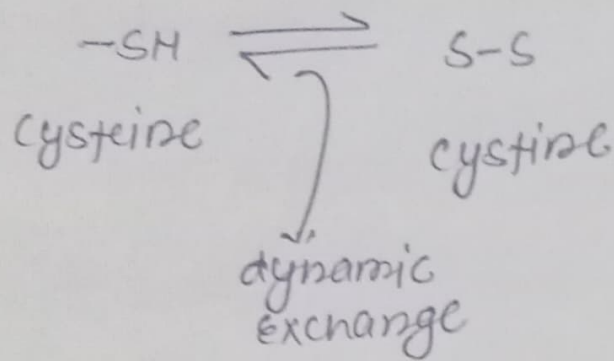 -SH ⇌ S-S
cysteine cystine
dynamic
exchange